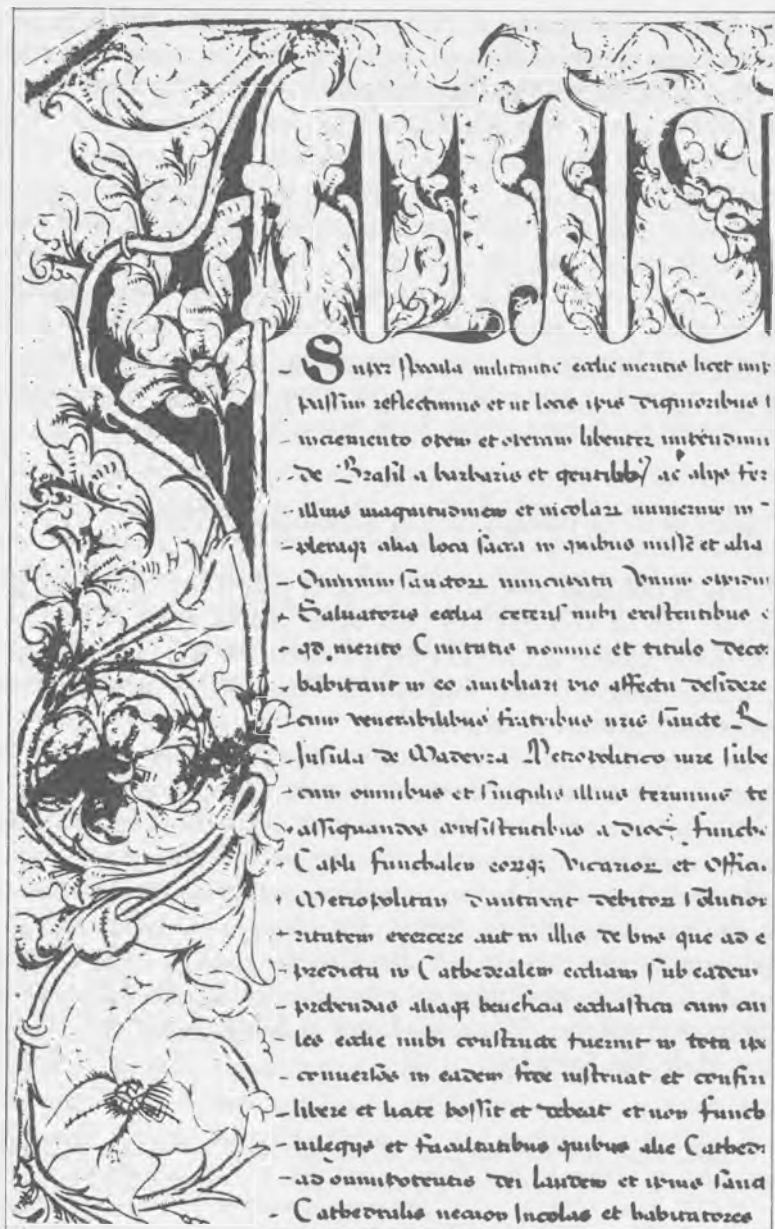 Super specula militantis ecclie meritis licet imp
passim reflectimus et ut locis ipis dignioribus
incremento opem et operam libenter impendimu
de Brasil a barbaris et gentibus ac alijs
illius magnitudinem et incolarz numerum in
pleraqz alia loca sacra in quibus misse et alia
Omnium sanctorz nuncupatu unum
Saluatoris ecclia ceteris inibi existentibus
qd merito Ciuitatis nomine et titulo deco
habitant in eo ampliari pio affectu desidere
cum venerabilibus fratribus nris sancte R
Insula de Madeyra Metropolitico iure sube
cum omnibus et singulis illius terminis te
assignandos consistentibus a dioc funcha
Capli funchalen eorqz Vicarior et Officia
Metropolitan duntaxat debitorz solution
ritatem exercere aut in illis de bns que ad e
predictu in Cathedralem eccliam sub eadem
prebendas aliaqz beneficia eccliastica cum cu
les ecclie inibi constructe fuerint in tota
conuersos in eadem fide instruat et confir
libere et licite possit et debeat et non funch
uilegijs et facultatibus quibus alie Cathedr
ad omnipotentis dei laudem et ipius sanct
Cathedralis necnon Incolas et habitatores